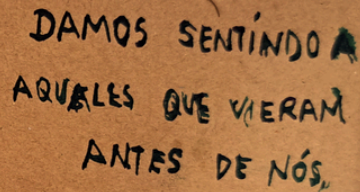 DAMOS SENTÍNDO A
AQUELES QUE VIERAM
ANTES DE NÓS.